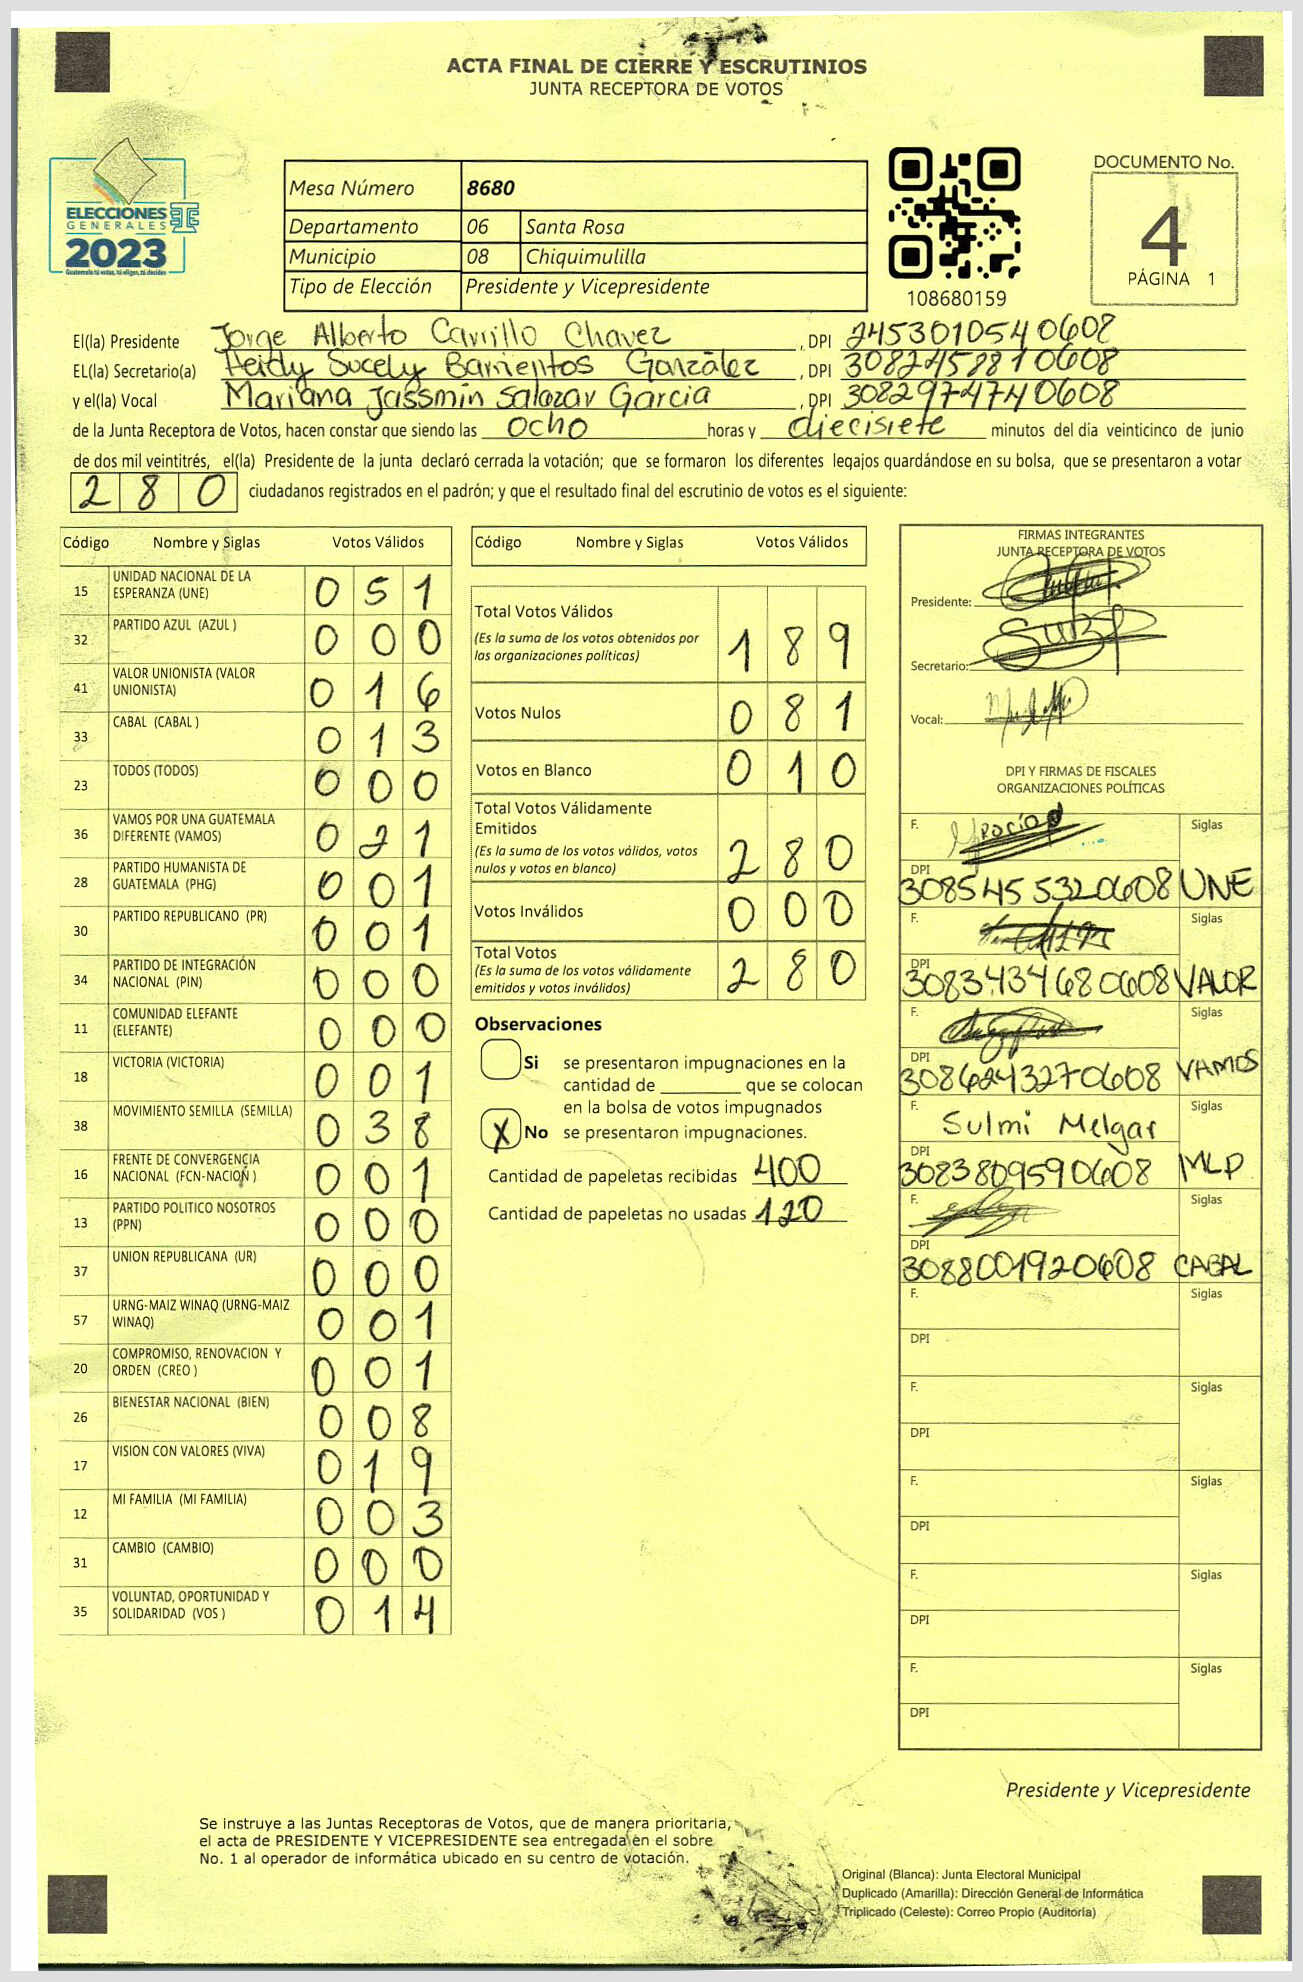 ACTA FINAL DE CIERRE Y ESCRUTINIOS
JUNTA RECEPTORA DE VOTOS
ELECCIONES
GENERALES
2023
Guatemala tú votas, tú eliges, tú decides
Mesa Número 8680
Departamento 06 Santa Rosa
Municipio 08 Chiquimulilla
Tipo de Elección Presidente y Vicepresidente
108680159
DOCUMENTO No.
4
PÁGINA 1
El(la) Presidente Jorge Alberto Carrillo Chavez, DPI 2453010540608
EL(la) Secretario(a) Heidy Sucely Barrientos González, DPI 3082458810608
y el(la) Vocal Mariana Jassmin Salazar Garcia, DPI 3082974740608
de la Junta Receptora de Votos, hacen constar que siendo las ocho horas y diecisiete minutos del día veinticinco de junio
de dos mil veintitrés, el(la) Presidente de la junta declaró cerrada la votación; que se formaron los diferentes legajos guardándose en su bolsa, que se presentaron a votar
280 ciudadanos registrados en el padrón; y que el resultado final del escrutinio de votos es el siguiente:
Código Nombre y Siglas Votos Válidos
15 UNIDAD NACIONAL DE LA ESPERANZA (UNE) 051
32 PARTIDO AZUL (AZUL ) 000
41 VALOR UNIONISTA (VALOR UNIONISTA) 016
33 CABAL (CABAL ) 013
23 TODOS (TODOS) 000
36 VAMOS POR UNA GUATEMALA DIFERENTE (VAMOS) 021
28 PARTIDO HUMANISTA DE GUATEMALA (PHG) 001
30 PARTIDO REPUBLICANO (PR) 001
34 PARTIDO DE INTEGRACIÓN NACIONAL (PIN) 000
11 COMUNIDAD ELEFANTE (ELEFANTE) 000
18 VICTORIA (VICTORIA) 001
38 MOVIMIENTO SEMILLA (SEMILLA) 038
16 FRENTE DE CONVERGENCIA NACIONAL (FCN-NACION ) 001
13 PARTIDO POLITICO NOSOTROS (PPN) 000
37 UNION REPUBLICANA (UR) 000
57 URNG-MAIZ WINAQ (URNG-MAIZ WINAQ) 001
20 COMPROMISO, RENOVACION Y ORDEN (CREO ) 001
26 BIENESTAR NACIONAL (BIEN) 008
17 VISION CON VALORES (VIVA) 019
12 MI FAMILIA (MI FAMILIA) 003
31 CAMBIO (CAMBIO) 000
35 VOLUNTAD, OPORTUNIDAD Y SOLIDARIDAD (VOS ) 014
Código Nombre y Siglas Votos Válidos
Total Votos Válidos 189
(Es la suma de los votos obtenidos por
las organizaciones políticas)
Votos Nulos 081
Votos en Blanco 010
Total Votos Válidamente
Emitidos 280
(Es la suma de los votos válidos, votos
nulos y votos en blanco)
Votos Inválidos 000
Total Votos 280
(Es la suma de los votos válidamente
emitidos y votos inválidos)
Observaciones
Si se presentaron impugnaciones en la
cantidad de ________ que se colocan
en la bolsa de votos impugnados
X No se presentaron impugnaciones.
Cantidad de papeletas recibidas 400
Cantidad de papeletas no usadas 120
FIRMAS INTEGRANTES
JUNTA RECEPTORA DE VOTOS
Presidente:
Secretario:
Vocal:
DPI Y FIRMAS DE FISCALES
ORGANIZACIONES POLÍTICAS
F. Siglas
DPI 3085455320608 UNE
F. Siglas
DPI 3083434680608 VALOR
F. Siglas
DPI 3086243270608 VAMOS
F. Sulmi Melgar Siglas
DPI 3083809590608 MLP
F. Siglas
DPI 3088001920608 CABAL
F. Siglas
DPI
F. Siglas
DPI
F. Siglas
DPI
F. Siglas
DPI
F. Siglas
DPI
Presidente y Vicepresidente
Se instruye a las Juntas Receptoras de Votos, que de manera prioritaria,
el acta de PRESIDENTE Y VICEPRESIDENTE sea entregada en el sobre
No. 1 al operador de informática ubicado en su centro de votación.
Original (Blanca): Junta Electoral Municipal
Duplicado (Amarilla): Dirección General de Informática
Triplicado (Celeste): Correo Propio (Auditoría)